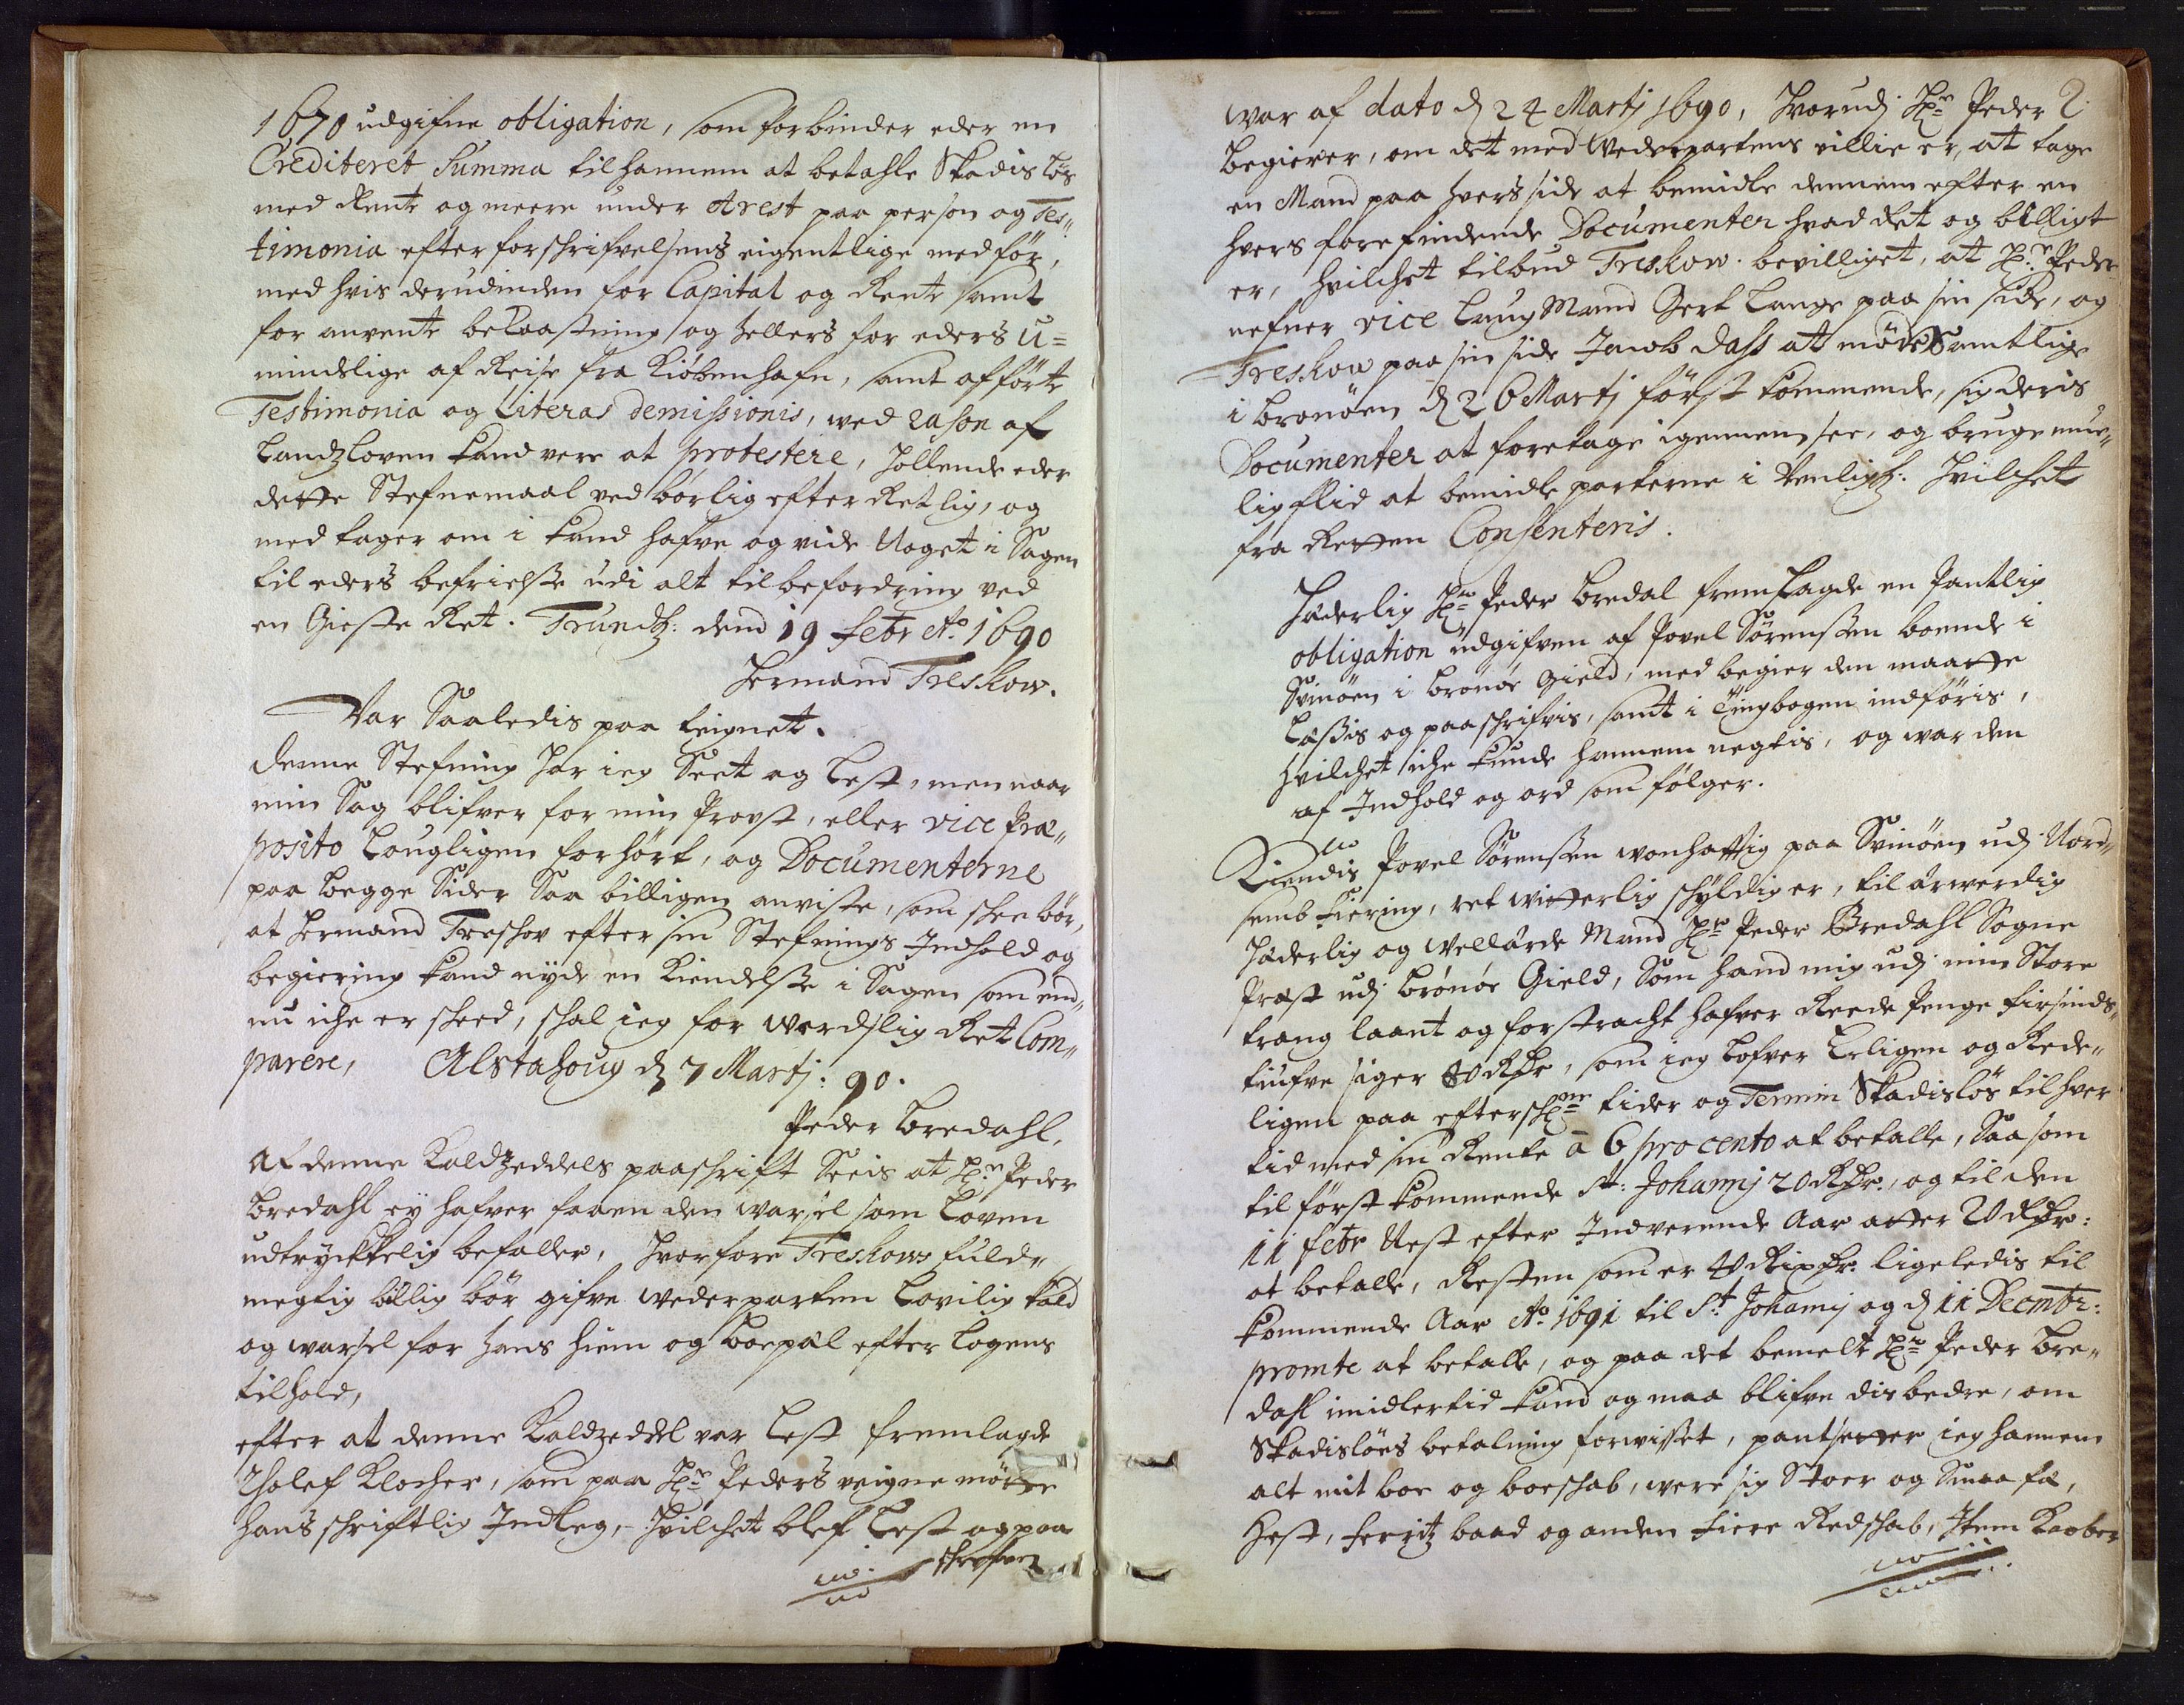 1670 udgifne obligation, som forbinder eder en
Crediteret Summa til hannem at betahle Skadisløs
med Rente og meere under Arest paa person og Tes„
timonia efter forschrifvelsens eigentlige medfør,
med hvis derudinden for Capital og Rente samt
for anvente bekaastning og hellers for eders u=
mindelige af Reise fra Kiøbenhafn, samt afførte
Testimonia og Literas demissionis, wed rason af
Landzloven kand vere at protestere, hollende eder
dette Stefnemaal ved børlig efter Retlig, og
med tager om i kand hafve og vide Noget i Sagen
til eders befrielsse udi alt til befordring ved
en Gieste Ret. Trundh: dend 19 febr Ao 1690
Hermand Treskow.
War Saaledis paa teignet.
Denne Stefning har ieg Seet og Lest, men naar
min Sag blifver for min Provst, eller vice Præ„
posito Lougligen forhørt, og Documenterne
paa begge Sider Saa billigen anviste, som schee bør,
at Hermand Treschov efter sin Stefnings Indhold og
begiering kand nyde en Kiendelsse i Sagen som end„
nu iche er scheed, schal ieg for werdslig Ret Com„
parere, Alstahoug d 7 Martj: 90.
Peder Bredahl.
Af denne Kaldzeddels paaschrift Seeis at Hr Peder
Bredahl ey hafver faaen den warsel som Loven
udtryckkelig befaller, hvorfore Treskows fuld„
megtig billig bør gifve wederparten Lovilig kald
og warsel for hans hiem og boepæl efter Logens
tilhold,
efter at denne Kaldzeddel var Lest fremlagde
Tholef Klocher, som paa Hr Peders veigne møtte
hans schriftlig Indleg, hvilchet blef Lest og paa
schrefven
war af dato d 24 Martj 1690, Hvorudj Hr Peder 2.
begierer, om det med Wederpartens villie er, at tage
en Mand paa hvers side at bemidle dennem efter en
hvers forefindende Documenter hvad Ret og billigt
er, hvilchet tilbud Treskow bevilliget, at Hr Peder
nefner vice Laug Mand Gert Lange paa sin side, og
Treskow paa sin side Jacob Dass at møde Samtlige
i Bronøen d 26 Martj først kommende, sig deris
Documenter at foretage igennem see, og bruge mue„
lig flid at bemidle parterne i Venligh: hvilchet
fra Retten Consenteris.
Hæderlig Hr Peder Bredal fremlagde en Pantlig
obligation udgifven af Povel Sørenssen boende i
Svinøen i Bronøe Gield, med begier den maatte
Læssis og paaschrifvis, samt i Tingbogen indføris,
hvilchet iche kunde hannem negtis, og war den
af Indhold og ord som følger.
Kiendis Povel Sørenssen wonhafftig paa Svinøen udj Nord„
semb fiering, ret witterlig schyldig er, til ærwerdig
Hæderlig og Wellærde Mand Hr Peder Bredahl Sogne
Præst udj Brønøe Gield, Som hand mig udj min Store
trang laant og forstracht hafver Reede Penge firsinds„
tiufve siger 80 Rdr, som ieg Lofver Erligen og Rede„
ligen paa eftersch tider og Termin Skadisløs til hver
tid med sin Rente a 6 pro cento at betalle, Saa som
til først kommende St: Johannj 20 Rdr., og til den
11 febr Nest efter Indverende Aar atter 20 Rdr:
at betalle, Resten som er 40 Rixdr. ligeledis til
kommende Aar Ao 1691 til St Johannj og d 11 Decmbr:
promte at betalle, og paa det bemelt Hr Peder Bre„
dahl imidlertid kand og maa blifve dis bedre, om
Skadisløes betalning forwisset, pantsetter ieg hannem
alt mit boe og boeschab, were sig Stoer og Smaa fæ,
Hest, ferritz baad og anden fiere Redschab, Item Kaaber